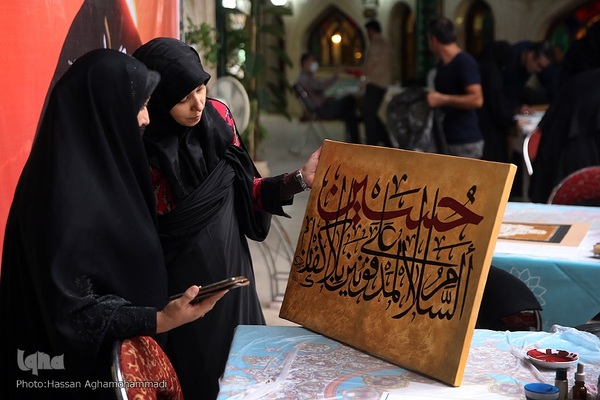 حُسین
السَّلامُ علی المدفونین بلا اکفان
iqna
Photo:Hassan Aghamohammadi